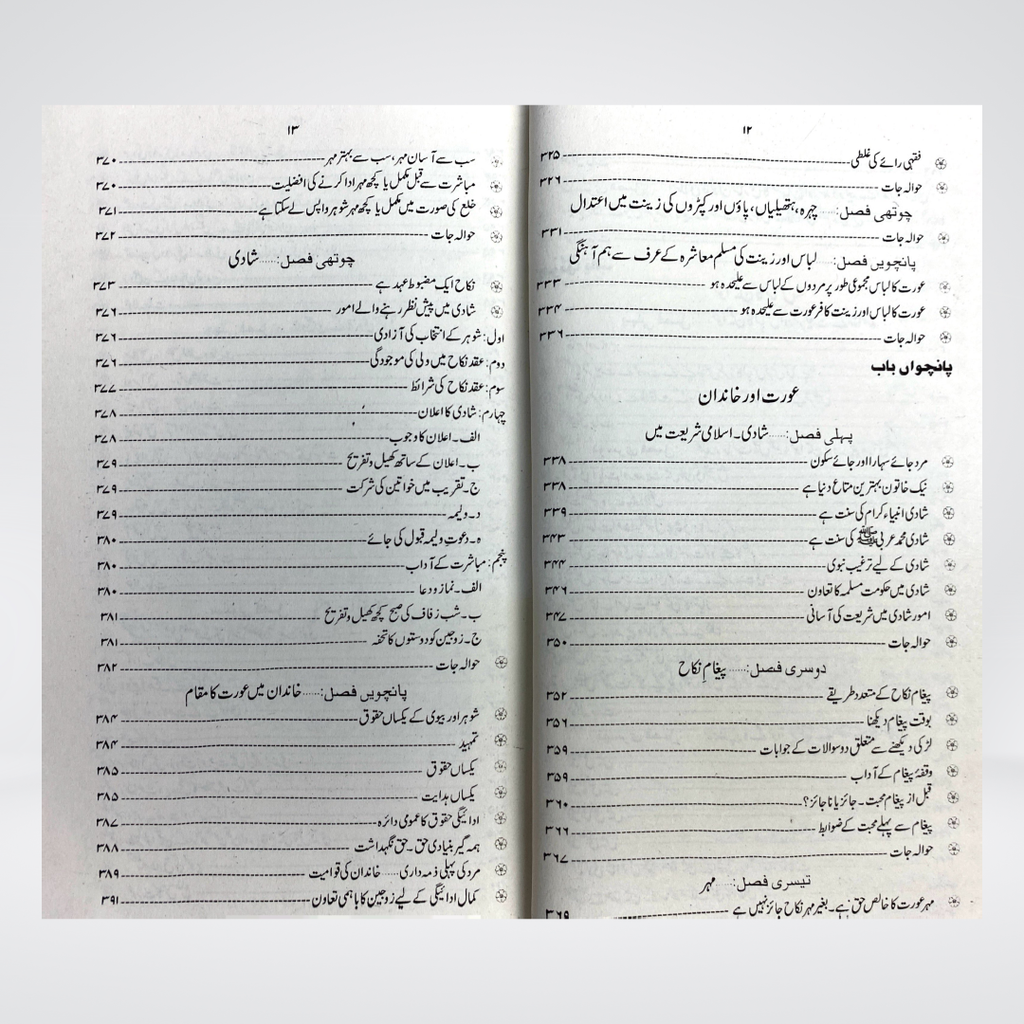 ۱۲
فقہی رائے کی غلطی ۳۲۵
حوالہ جات ۳۲۶
چوتھی فصل:...... چہرہ، ہتھیلیاں، پاؤں اور کپڑوں کی زینت میں اعتدال
حوالہ جات ۳۳۱
پانچویں فصل:...... لباس اور زینت کی مسلم معاشرہ کے عرف سے ہم آہنگی
عورت کا لباس مجموعی طور پر مردوں کے لباس سے علیحدہ ہو ۳۳۳
عورت کا لباس اور زینت کافر عورت سے علیحدہ ہو ۳۳۴
حوالہ جات ۳۳۶
پانچواں باب
عورت اور خاندان
پہلی فصل:...... شادی۔اسلامی شریعت میں
مرد جائے سہارا اور جائے سکون ۳۳۸
نیک خاتون بہترین متاع دنیا ہے ۳۳۸
شادی انبیاء کرام کی سنت ہے ۳۳۹
شادی محمد عربی ﷺ کی سنت ہے ۳۴۳
شادی کے لیے ترغیب نبوی ۳۴۴
شادی میں حکومت مسلمہ کا تعاون ۳۴۶
امور شادی میں شریعت کی آسانی ۳۴۷
حوالہ جات ۳۵۰
دوسری فصل:...... پیغامِ نکاح
پیغام نکاح کے متعدد طریقے ۳۵۲
بوقت پیغام دیکھنا ۳۵۶
لڑکی دیکھنے سے متعلق دو سوالات کے جوابات ۳۵۹
وقفۂ پیغام کے آداب ۳۵۹
قبل از پیغام محبت۔جائز یا ناجائز؟ ۳۶۰
پیغام سے پہلے محبت کے ضوابط ۳۶۶
حوالہ جات ۳۶۷
تیسری فصل:...... مہر
مہر عورت کا خالص حق ہے۔بغیر مہر نکاح جائز نہیں ہے ۳۶۹
۱۳
سب سے آسان مہر، سب سے بہتر مہر ۳۷۰
مباشرت سے قبل مکمل یا کچھ مہر ادا کرنے کی افضلیت ۳۷۰
خلع کی صورت میں مکمل یا کچھ مہر شوہر واپس لے سکتا ہے ۳۷۱
حوالہ جات ۳۷۲
چوتھی فصل:...... شادی
نکاح ایک مضبوط عہد ہے ۳۷۳
شادی میں پیش نظر رہنے والے امور ۳۷۶
اول: شوہر کے انتخاب کی آزادی ۳۷۶
دوم: عقد نکاح میں ولی کی موجودگی ۳۷۶
سوم: عقد نکاح کی شرائط ۳۷۷
چہارم: شادی کا اعلان ۳۷۸
الف۔اعلان کا وجوب ۳۷۸
ب۔اعلان کے ساتھ کھیل و تفریح ۳۷۹
ج۔تقریب میں خواتین کی شرکت ۳۷۹
د۔ولیمہ ۳۷۹
ہ۔دعوتِ ولیمہ قبول کی جائے ۳۸۰
پنجم: مباشرت کے آداب ۳۸۰
الف۔نماز و دعا ۳۸۰
ب۔شب زفاف کی صبح کچھ کھیل و تفریح ۳۸۱
ج۔زوجین کو دوستوں کا تحفہ ۳۸۱
حوالہ جات ۳۸۲
پانچویں فصل:...... خاندان میں عورت کا مقام
شوہر اور بیوی کے یکساں حقوق ۳۸۴
تمہید ۳۸۴
یکساں حقوق ۳۸۵
یکساں ہدایت ۳۸۵
ادائیگی حقوق کا عمومی دائرہ ۳۸۷
ہمہ گیر بنیادی حق۔حق نگہداشت ۳۸۸
مرد کی پہلی ذمہ داری...... خاندان کی قوامیت ۳۸۹
کمال ادائیگی کے لیے زوجین کا باہمی تعاون ۳۹۱